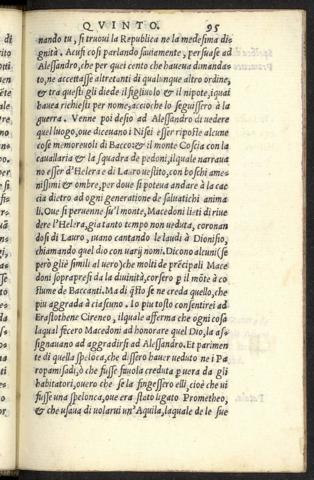 QVINTO. 95
nando tu, si truoui la Republica ne la medesima di-
gnità. Acusi cosi parlando sauiamente, persuase ad
Alessandro, che per quei cento che haueua dimanda-
to, ne accettasse altretanti di qualunque altro ordine,
& tra questi gli diede il figliuolo & il nipote, iquai
hauea richiesti per nome, accioche lo seguissero à la
guerra. Venne poi desio ad Alessandro di uedere
quel luogo, oue diceuano i Nisei esser riposte alcune
cose memoreuoli di Bacco: & il monte Coscia con la
cauallaria & la squadra de pedoni, il quale narraua-
no esser d'Helera e di Lauro uestito, con boschi ame-
nissimi & ombre, per doue si poteua andare à la cac-
cia dietro ad ogni generatione de saluatichi anima
li. Oue si peruenne su'l monte, Macedoni lieti di riue
dere l'Helera, gia tanto tempo non ueduta, coronan
dosi di Lauro, iuano cantando le laudi à Dionisio,
chiamando quel dio con uarij nomi. Dicono alcuni (se
però gliè simili al uero) che molti de prēcipali Mace
doni soprapresi da la diuinità, corsero p il mōte à co
stume de Baccanti. Ma di q̄sto se ne creda quello, che
piu aggrada à ciascuno. Io piu tosto consentirei ad
Erastothene Cireneo, il quale afferma che ogni cosa
laqual fecero Macedoni ad honorare quel Dio, la as-
signauano ad aggradirsi ad Alessandro. Et parimen
te di quella spelonca, che dissero hauer ueduto ne i Pa
ropamisadi, ò che fusse fauola creduta p uera da gli
habitatori, ouero che se la fingessero elli, cioè che ui
fusse una spelonca, oue era stato ligato Prometheo,
& che usaua di uolarui un'Aquila, laquale de le sue